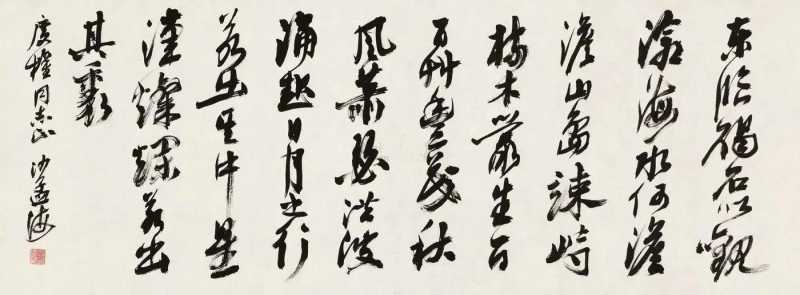 東臨碣石以觀
滄海水何澹
澹山島竦峙
樹木叢生百
百艸豐茂秋
風蕭瑟洪波
涌起日月之行
若出其中星
漢燦爛若出
其裏
同志正 沙孟海